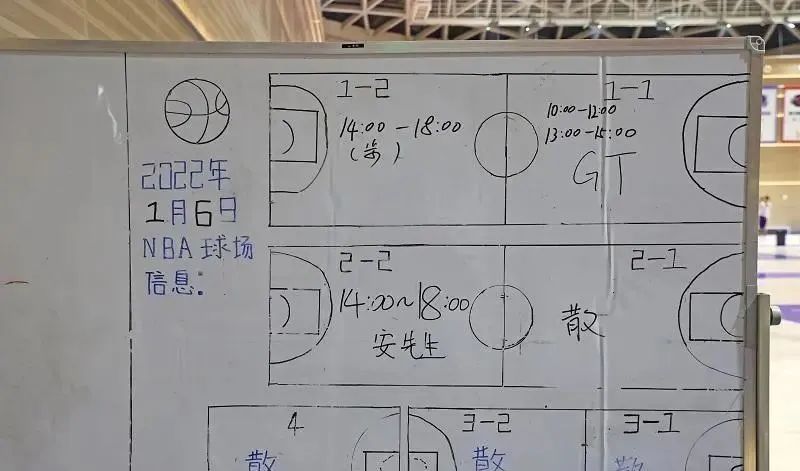 2022年
1月6日
NBA球场
信息:
1-2
14:00-18:00
1-1
10:00-12:00
13:00-15:00
GT
2-2
14:00~18:00
安先生
2-1
散
4
散
3-2
散
3-1
散